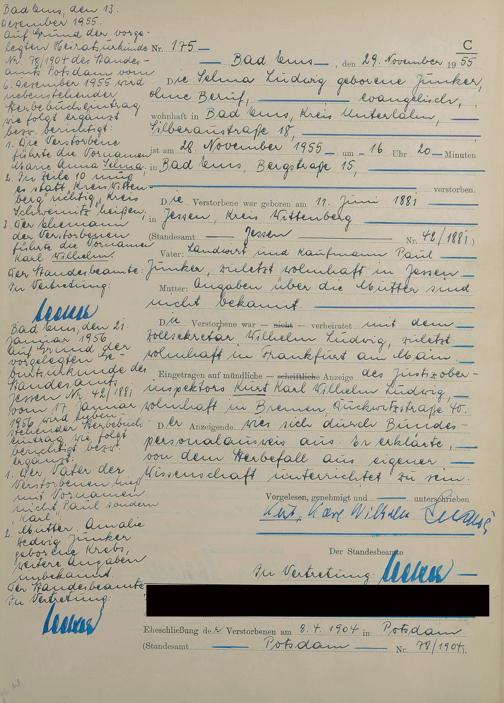 Bad Ems, den 13.
Dezember 1955.
Auf Grund der vorge-
legten Heiratsurkunde
Nr. 78/1904 des Standes-
amts Potsdam vom
6. Dezember 1955 wird
nebenstehender
Sterbebucheintrag
wie folgt ergänzt
bezw. berichtigt:
1. Die Verstorbene
führte die Vornamen
Marie Anna Selma.
2. In Zeile 10 muß
es statt "Kreis Witten-
berg" richtig "Kreis
Schweinitz" heißen.
3. Der Ehemann
der Verstorbenen
führte die Vornamen
Karl Wilhelm.
Der Standesbeamte:
In Vertretung:
Bad Ems, den 21.
Januar 1956
Auf Grund der
vorgelegten Ge-
burtsurkunde des
Standesamts
Jessen Nr. 42/1881
vom 17. Januar
1956 wird neben-
stehender Sterbebuch-
eintrag wie folgt
berichtigt bezw.
ergänzt:
1. Der Vater der
Verstorbenen hieß
mit Vornamen
nicht Paul sondern
"Karl"
2. Mutter: Amalie
Hedwig Junker
geborene Krebs,
weitere Angaben
unbekannt
Der Standesbeamte
In Vertretung:
C
Nr. 175
Bad Ems, den 29. November 1955
Die Selma Ludwig geborene Junker,
ohne Beruf, evangelisch,
wohnhaft in Bad Ems, Kreis Unterlahn,
Silberaustraße 18,
ist am 28. November 1955 um 16 Uhr 20 Minuten
in Bad Ems, Bergstraße 15,
verstorben.
Die Verstorbene war geboren am 11. Juni 1881
in Jessen, Kreis Wittenberg
(Standesamt Jessen Nr. 42/1881)
Vater: Landwirt und Kaufmann Paul
Junker, zuletzt wohnhaft in Jessen
Mutter: Angaben über die Mutter sind
nicht bekannt.
Die Verstorbene war — nicht — verheiratet mit dem
Zollsekretär Wilhelm Ludwig, zuletzt
wohnhaft in Frankfurt am Main
Eingetragen auf mündliche — schriftliche Anzeige des Justizober-
inspektors Kurt Karl Wilhelm Ludwig,
wohnhaft in Bremen 40.
Der Anzeigende wies sich durch Bundes-
personalausweis aus. Er erklärte,
von dem Sterbefall aus eigener
Wissenschaft unterrichtet zu sein.
Vorgelesen, genehmigt und unterschrieben
Kurt Karl Wilhelm Ludwig
Der Standesbeamte
In Vertretung:
Eheschließung der Verstorbenen am 8.4.1904 in Potsdam
(Standesamt Potsdam Nr. 78/1904)